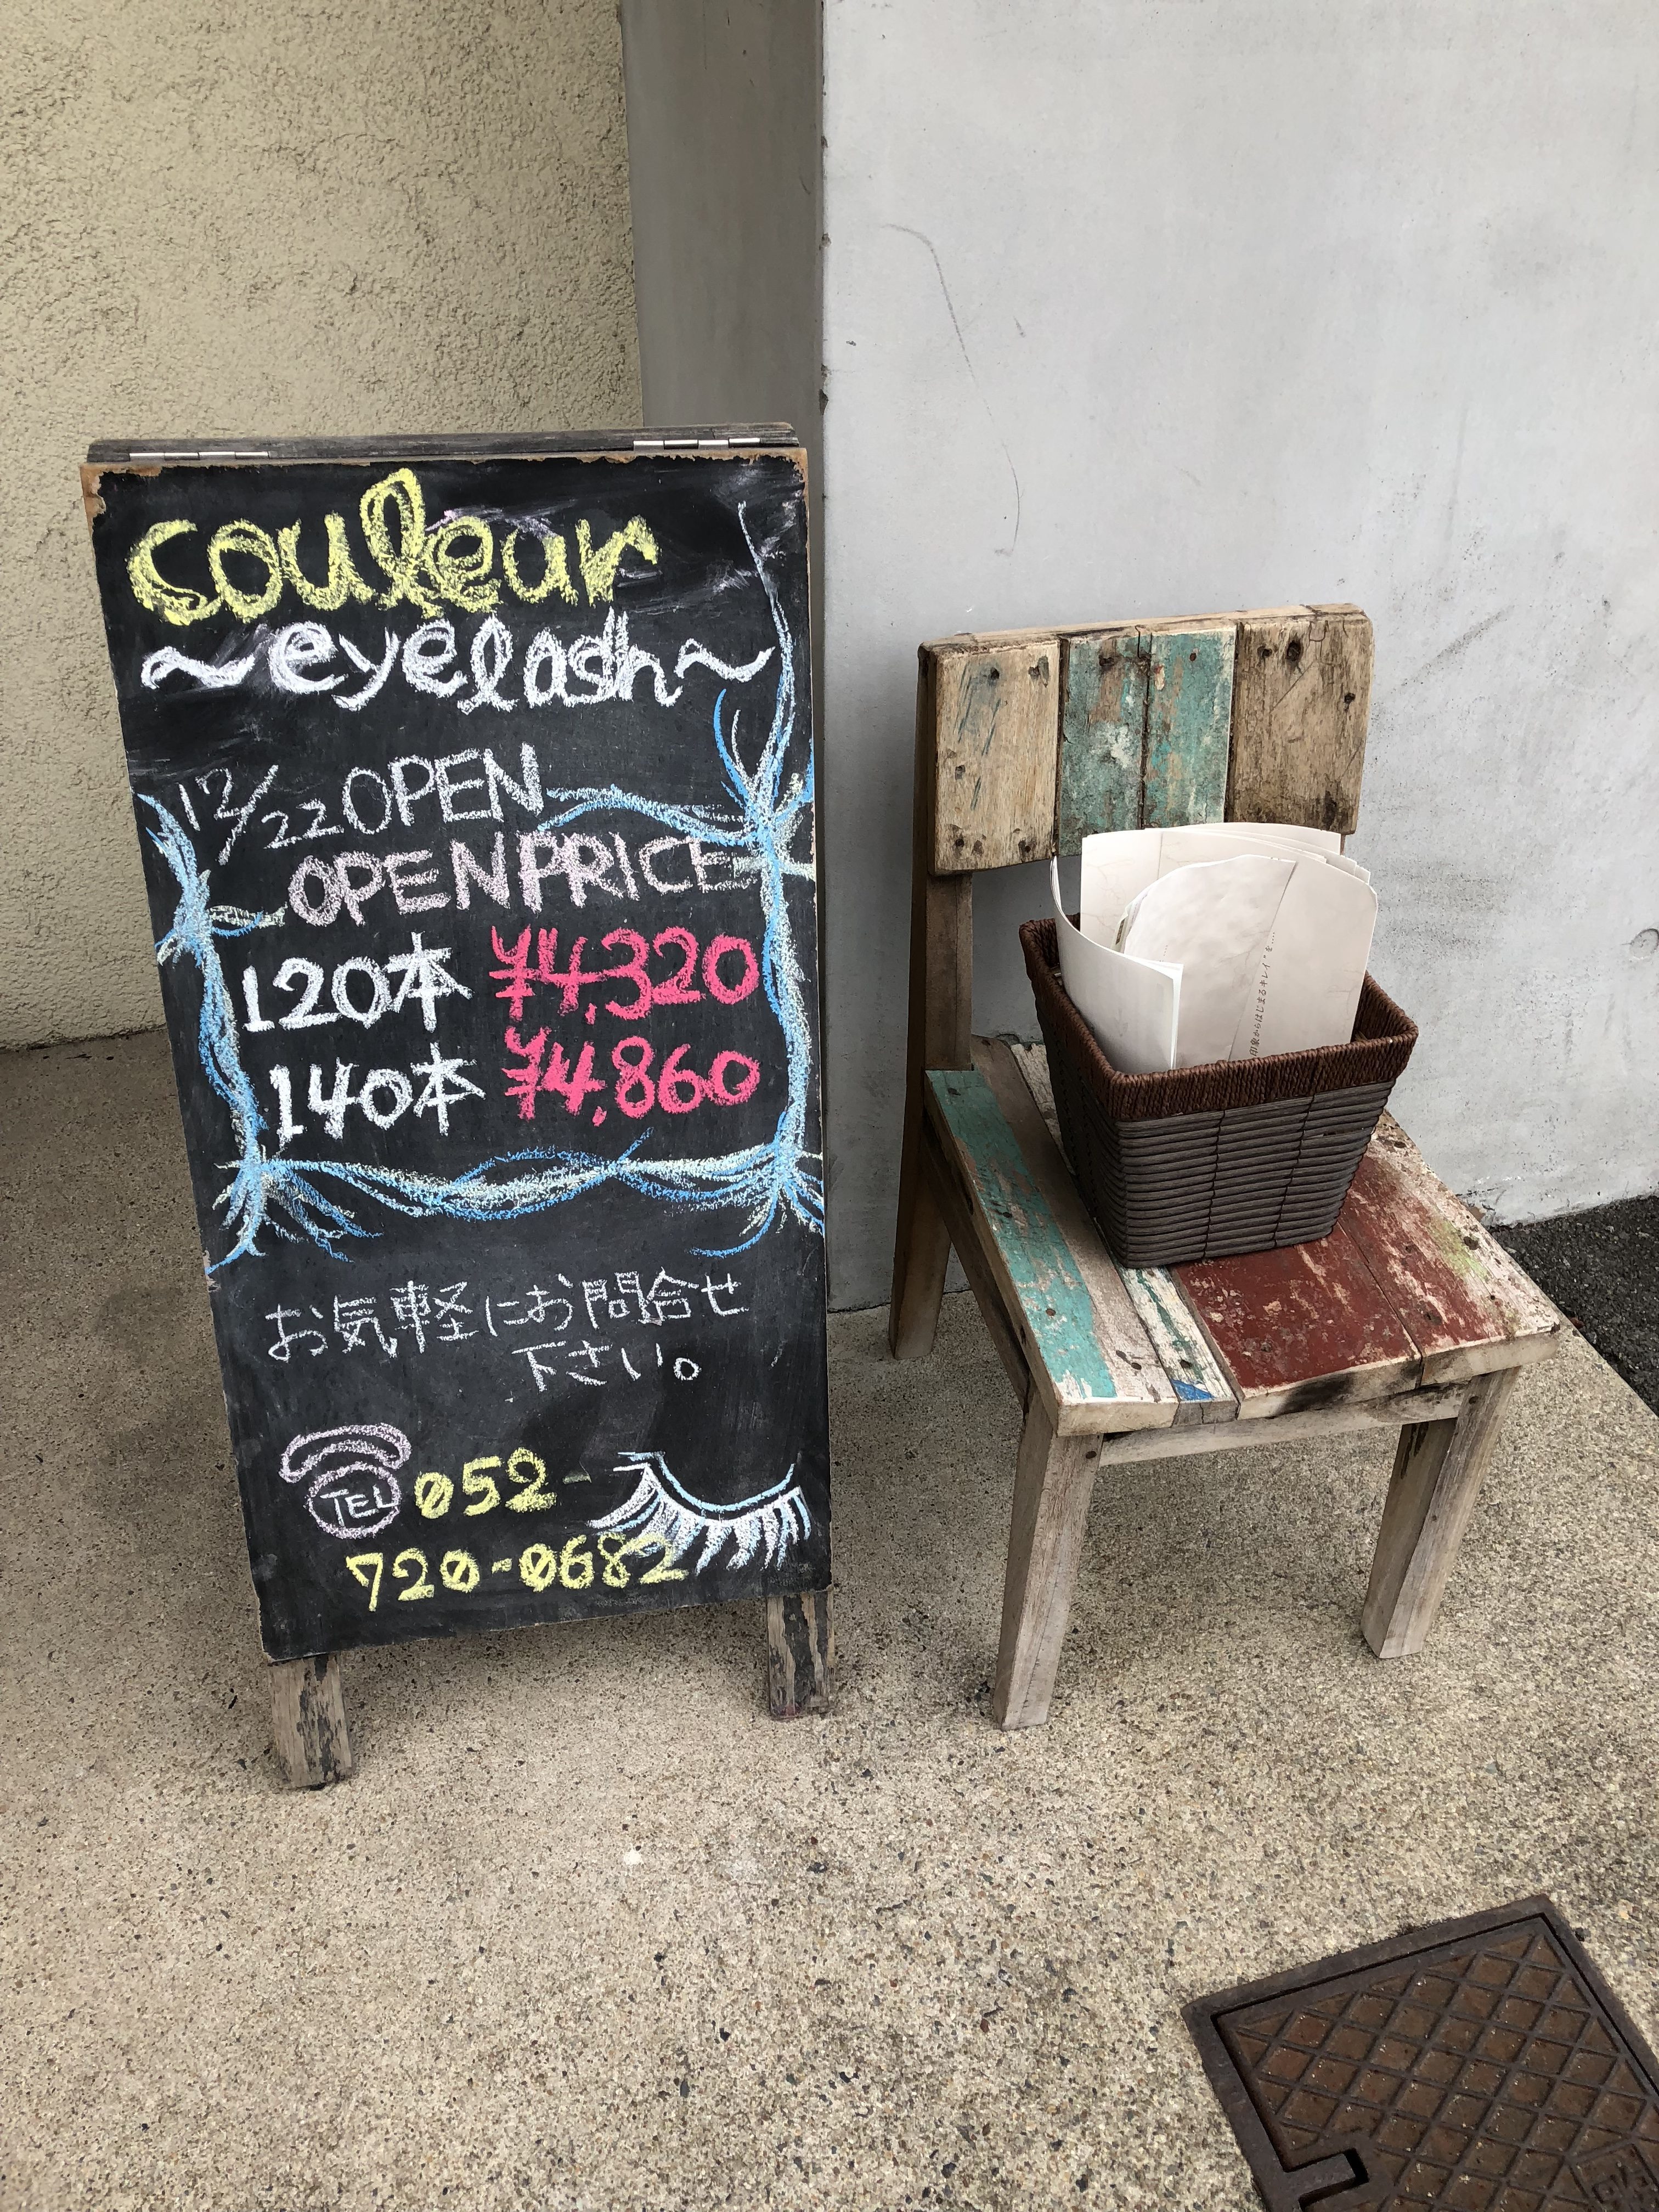 couleur
～eyelash～
12/22 OPEN
OPEN PRICE
120本 ¥4,320
140本 ¥4,860
お気軽にお問合せ
下さい。
TEL 052-
720-0682
印象からはじまるキレイを....